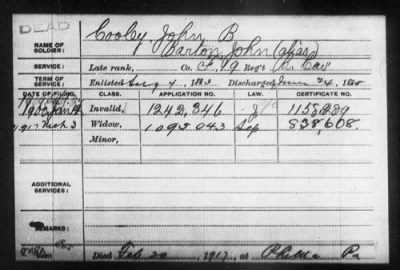 DEAD
Cooley John B
NAME OF SOLDIER:
Barton, John (alias)
SERVICE:
Late rank, Co. F, 19 Reg't Pa Cav
TERM OF SERVICE:
Enlisted Aug 4, 1863 Discharged June 24, 1865
DATE OF FILING. CLASS. APPLICATION NO. LAW. CERTIFICATE NO.
Invalid, 1242,346 1158289
1917 Mch 3 Widow, 1095043 Sep 838,608.
Minor,
ADDITIONAL SERVICES:
REMARKS:
Died Feb 20, 1917, at Phila Pa